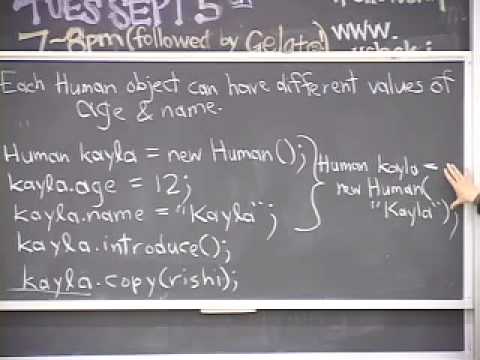 TUES SEPT 5th
7-8pm (followed by Gelato!)
www.
Each Human object can have different values of
age & name.
Human kayla = new Human();
kayla.age = 12;
kayla.name = "Kayla";
kayla.introduce();
kayla.copy(rishi);
Human kayla =
new Human(
"Kayla");